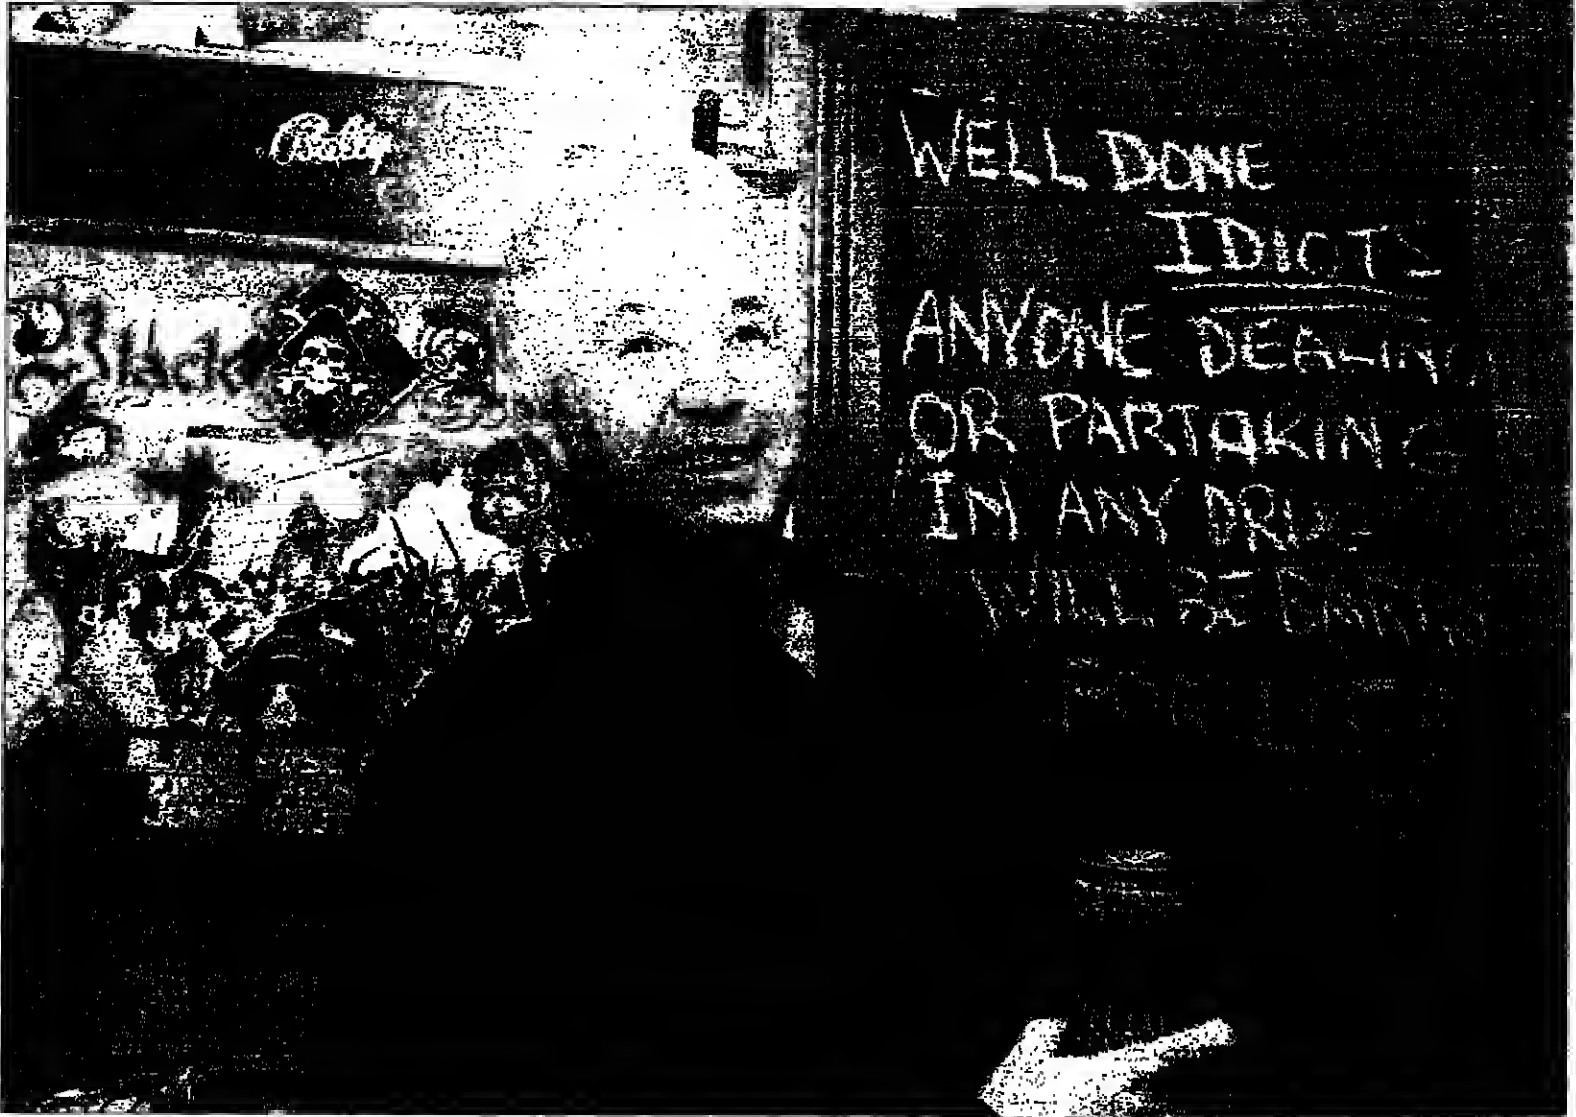 Bally
Black
WELL DONE
IDIOTS
ANYONE DEALING
OR PARTAKING
IN ANY DRUGS
WILL BE